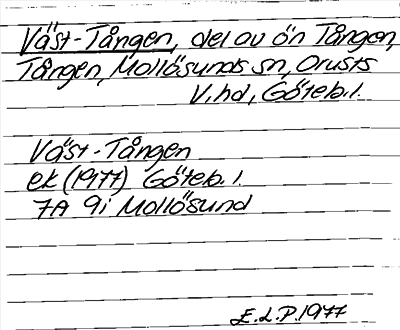 Väst-Tången, del av ön Tången,
Tången, Mollösunds sn, Orusts
V. hd, Göteb. l.
Väst-Tången
ek (1977) Göteb. l.
7A 9i Mollösund
E.L.P. 1977